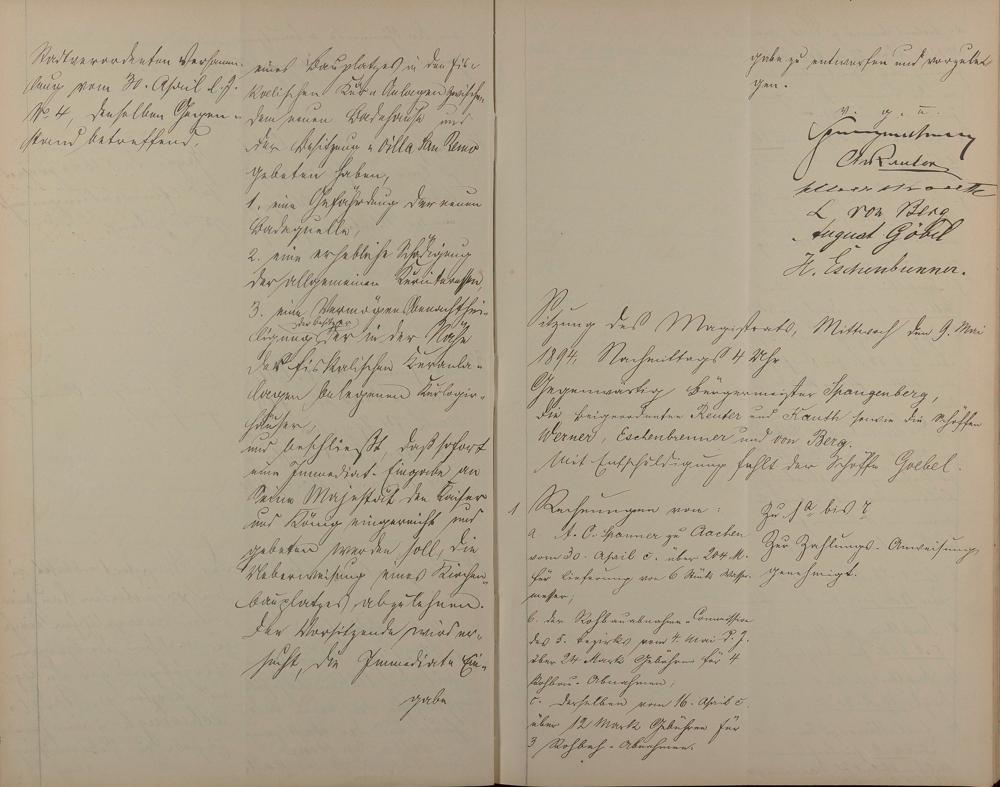 Stadtverordneten Versamm-
lung vom 30. April l. J.
No 4, denselben Gegen-
stand betreffend.
eines Bauplatzes in den fis-
kalischen Kur-Anlagen zwischen
dem neuen Badehause und
der Besitzung Villa San Remo
gebeten haben,
1. eine Gefährdung der neuen
Badequelle,
2. eine erhebliche Schädigung
der allgemeinen Kurinteressen,
3. eine Vermögensbenachthei-
ligung der Besitzer der in der Nähe
der fiskalischen Kuranla-
lagen belegenen Kurlogir-
häuser,
und beschließt, daß sofort
eine Immediat-Eingabe an
Seine Majestät den Kaiser
und König eingereicht und
gebeten werden soll, die
Ueberweisung eines Kirchen-
bauplatzes abzulehnen.
Der Vorsitzende wird er-
sucht, die Immediate Ein-
gabe
gabe zu entwerfen und vorzule-
gen.
v. g. u.
Spangenberg
C. Reuter
L von Berg
August Göbel
H. Eschenbrenner.
Sitzung des Magistrats, Mittwoch den 9. Mai
1894. Nachmittags 4 Uhr
Gegenwärtig, Bürgermeister Spangenberg,
die Beigeordneten Reuter und Kauth sowie die Schöffen
Werner, Eschenbrenner und von Berg.
Mit Entschuldigung fehlt der Schöffe Goebel.
1 Rechnungen von:
a A. C. Spanner zu Aachen
vom 30. April c. über 204 M.
für Lieferung von 6 Stück Wasser-
messer;
b. der Rohbauabnahme-Commission
des 5. Bezirks vom 4. Mai d. J.
über 24 Mark Gebühren für 4
Rohbau-Abnahmen;
c. derselben vom 16. April c.
über 12 Mark Gebühren für
3 Rohbau-Abnahmen.
Zu 1a bis
Zur Zahlungs-Anweisung
genehmigt.